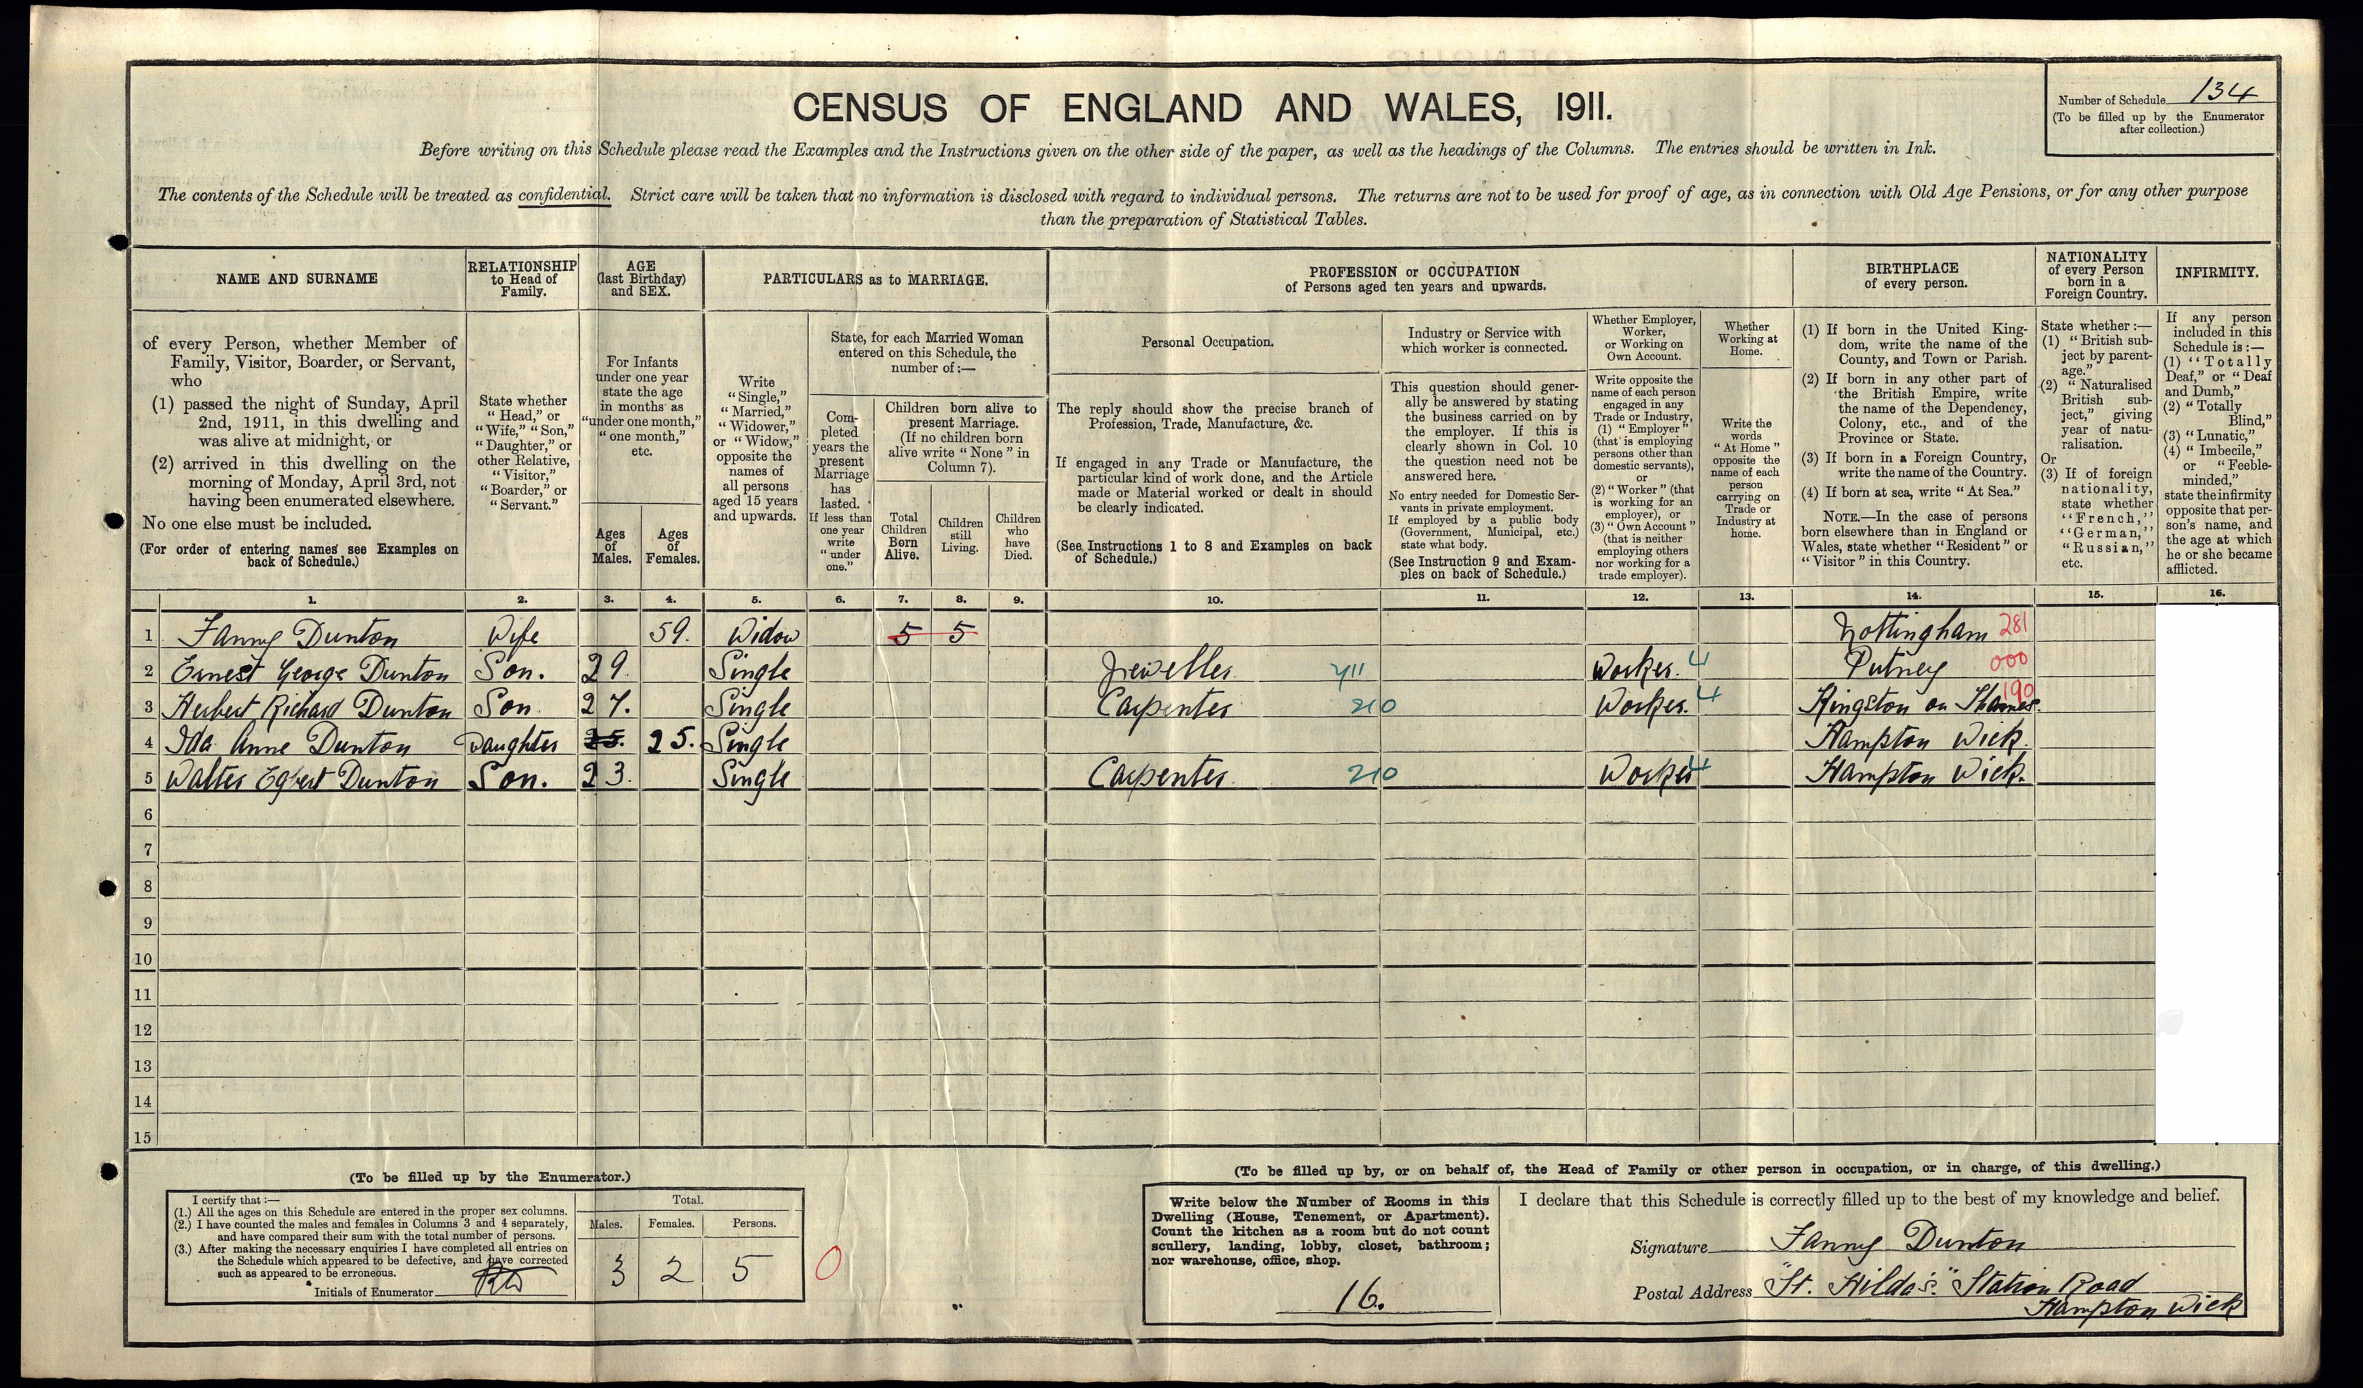 Number of Schedule 134
(To be filled up by the Enumerator
after collection.)
CENSUS OF ENGLAND AND WALES, 1911.
Before writing on this Schedule please read the Examples and the Instructions given on the other side of the paper, as well as the headings of the Columns. The entries should be written in Ink.
The contents of the Schedule will be treated as confidential. Strict care will be taken that no information is disclosed with regard to individual persons. The returns are not to be used for proof of age, as in connection with Old Age Pensions, or for any other purpose
than the preparation of Statistical Tables.
NAME AND SURNAME
of every Person, whether Member of
Family, Visitor, Boarder, or Servant,
who
(1) passed the night of Sunday, April
2nd, 1911, in this dwelling and
was alive at midnight, or
(2) arrived in this dwelling on the
morning of Monday, April 3rd, not
having been enumerated elsewhere.
No one else must be included.
(For order of entering names see Examples on
back of Schedule.)
RELATIONSHIP
to Head of
Family.
State whether
"Head," or
"Wife," "Son,"
"Daughter," or
other Relative,
"Visitor,"
"Boarder," or
"Servant."
AGE
(last Birthday)
and SEX.
For Infants
under one year
state the age
in months as
"under one month,"
"one month,"
etc.
Ages
of
Males.
Ages
of
Females.
PARTICULARS as to MARRIAGE.
Write
"Single,"
"Married,"
"Widower,"
or "Widow,"
opposite the
names of
all persons
aged 15 years
and upwards.
State, for each Married Woman
entered on this Schedule, the
number of:—
Com-
pleted
years the
present
Marriage
has
lasted.
If less than
one year
write
"under
one."
Children born alive to
present Marriage.
(If no children born
alive write "None" in
Column 7).
Total
Children
Born
Alive.
Children
still
Living.
Children
who
have
Died.
PROFESSION or OCCUPATION
of Persons aged ten years and upwards.
Personal Occupation.
The reply should show the precise branch of
Profession, Trade, Manufacture, &c.
If engaged in any Trade or Manufacture, the
particular kind of work done, and the Article
made or Material worked or dealt in should
be clearly indicated.
(See Instructions 1 to 8 and Examples on back
of Schedule.)
Industry or Service with
which worker is connected.
This question should gener-
ally be answered by stating
the business carried on by
the employer. If this is
clearly shown in Col. 10
the question need not be
answered here.
No entry needed for Domestic Ser-
vants in private employment.
If employed by a public body
(Government, Municipal, etc.)
state what body.
(See Instruction 9 and Exam-
ples on back of Schedule.)
Whether Employer,
Worker,
or Working on
Own Account.
Write opposite the
name of each person
engaged in any
Trade or Industry,
(1) "Employer"
(that is employing
persons other than
domestic servants),
or
(2) "Worker" (that
is working for an
employer), or
(3) "Own Account"
(that is neither
employing others
nor working for a
trade employer).
Whether
Working at
Home.
Write the
words
"At Home"
opposite the
name of each
person
carrying on
Trade or
Industry at
home.
BIRTHPLACE
of every person.
(1) If born in the United King-
dom, write the name of the
County, and Town or Parish.
(2) If born in any other part of
the British Empire, write
the name of the Dependency,
Colony, etc., and of the
Province or State.
(3) If born in a Foreign Country,
write the name of the Country.
(4) If born at sea, write "At Sea."
NOTE.—In the case of persons
born elsewhere than in England or
Wales, state whether "Resident" or
"Visitor" in this Country.
NATIONALITY
of every Person
born in a
Foreign Country.
State whether:—
(1) "British sub-
ject by parent-
age."
(2) "Naturalised
British sub-
ject," giving
year of natu-
ralisation.
Or
(3) If of foreign
nationality,
state whether
"French,"
"German,"
"Russian,"
etc.
INFIRMITY.
If any person
included in this
Schedule is:—
(1) "Totally
Deaf," or "Deaf
and Dumb,"
(2) "Totally
Blind,"
(3) "Lunatic,"
(4) "Imbecile,"
or "Feeble-
minded,"
state the infirmity
opposite that per-
son's name, and
the age at which
he or she became
afflicted.
1. 2. 3. 4. 5. 6. 7. 8. 9. 10. 11. 12. 13. 14. 15. 16.
1 Fanny Dunton Wife 59. Widow 5 5 Nottingham 281
2 Ernest George Dunton Son. 29. Single Jeweller 411 Worker. 4 Putney 000
3 Herbert Richard Dunton Son 27. Single Carpenter 210 Worker. 4 Kingston on Thames. 190
4 Ida Anne Dunton Daughter 25. 25. Single Hampton Wick.
5 Walter Egbert Dunton Son. 23. Single Carpenter 210 Worker 4 Hampton Wick.
6
7
8
9
10
11
12
13
14
15
(To be filled up by the Enumerator.)
I certify that:—
(1.) All the ages on this Schedule are entered in the proper sex columns.
(2.) I have counted the males and females in Columns 3 and 4 separately,
and have compared their sum with the total number of persons.
(3.) After making the necessary enquiries I have completed all entries on
the Schedule which appeared to be defective, and have corrected
such as appeared to be erroneous.
Initials of Enumerator
Total.
Males. Females. Persons.
3 2 5 0
(To be filled up by, or on behalf of, the Head of Family or other person in occupation, or in charge, of this dwelling.)
Write below the Number of Rooms in this
Dwelling (House, Tenement, or Apartment).
Count the kitchen as a room but do not count
scullery, landing, lobby, closet, bathroom;
nor warehouse, office, shop.
16.
I declare that this Schedule is correctly filled up to the best of my knowledge and belief.
Signature Fanny Dunton
Postal Address "St. Hilda's." Station Road
Hampton Wick